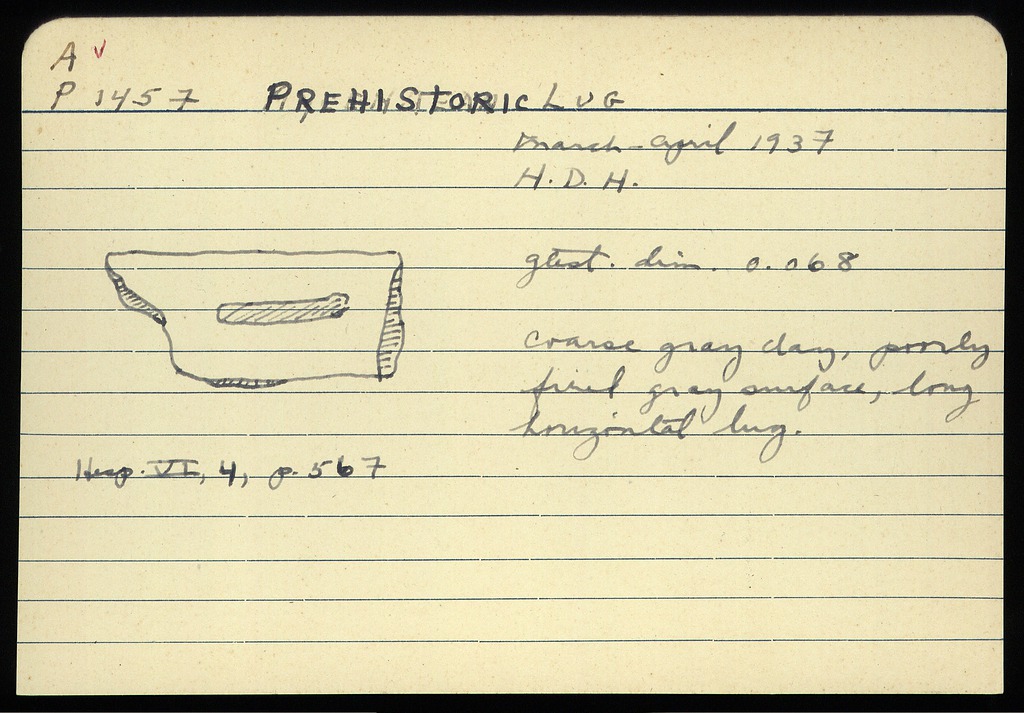 A v
P 1457 PREHISTORIC LUG
March-April 1937
H. D. H.
gtest. dim. 0.068
coarse gray clay, poorly
fired gray surface, long
horizontal lug.
Hesp. VI, 4, p. 567